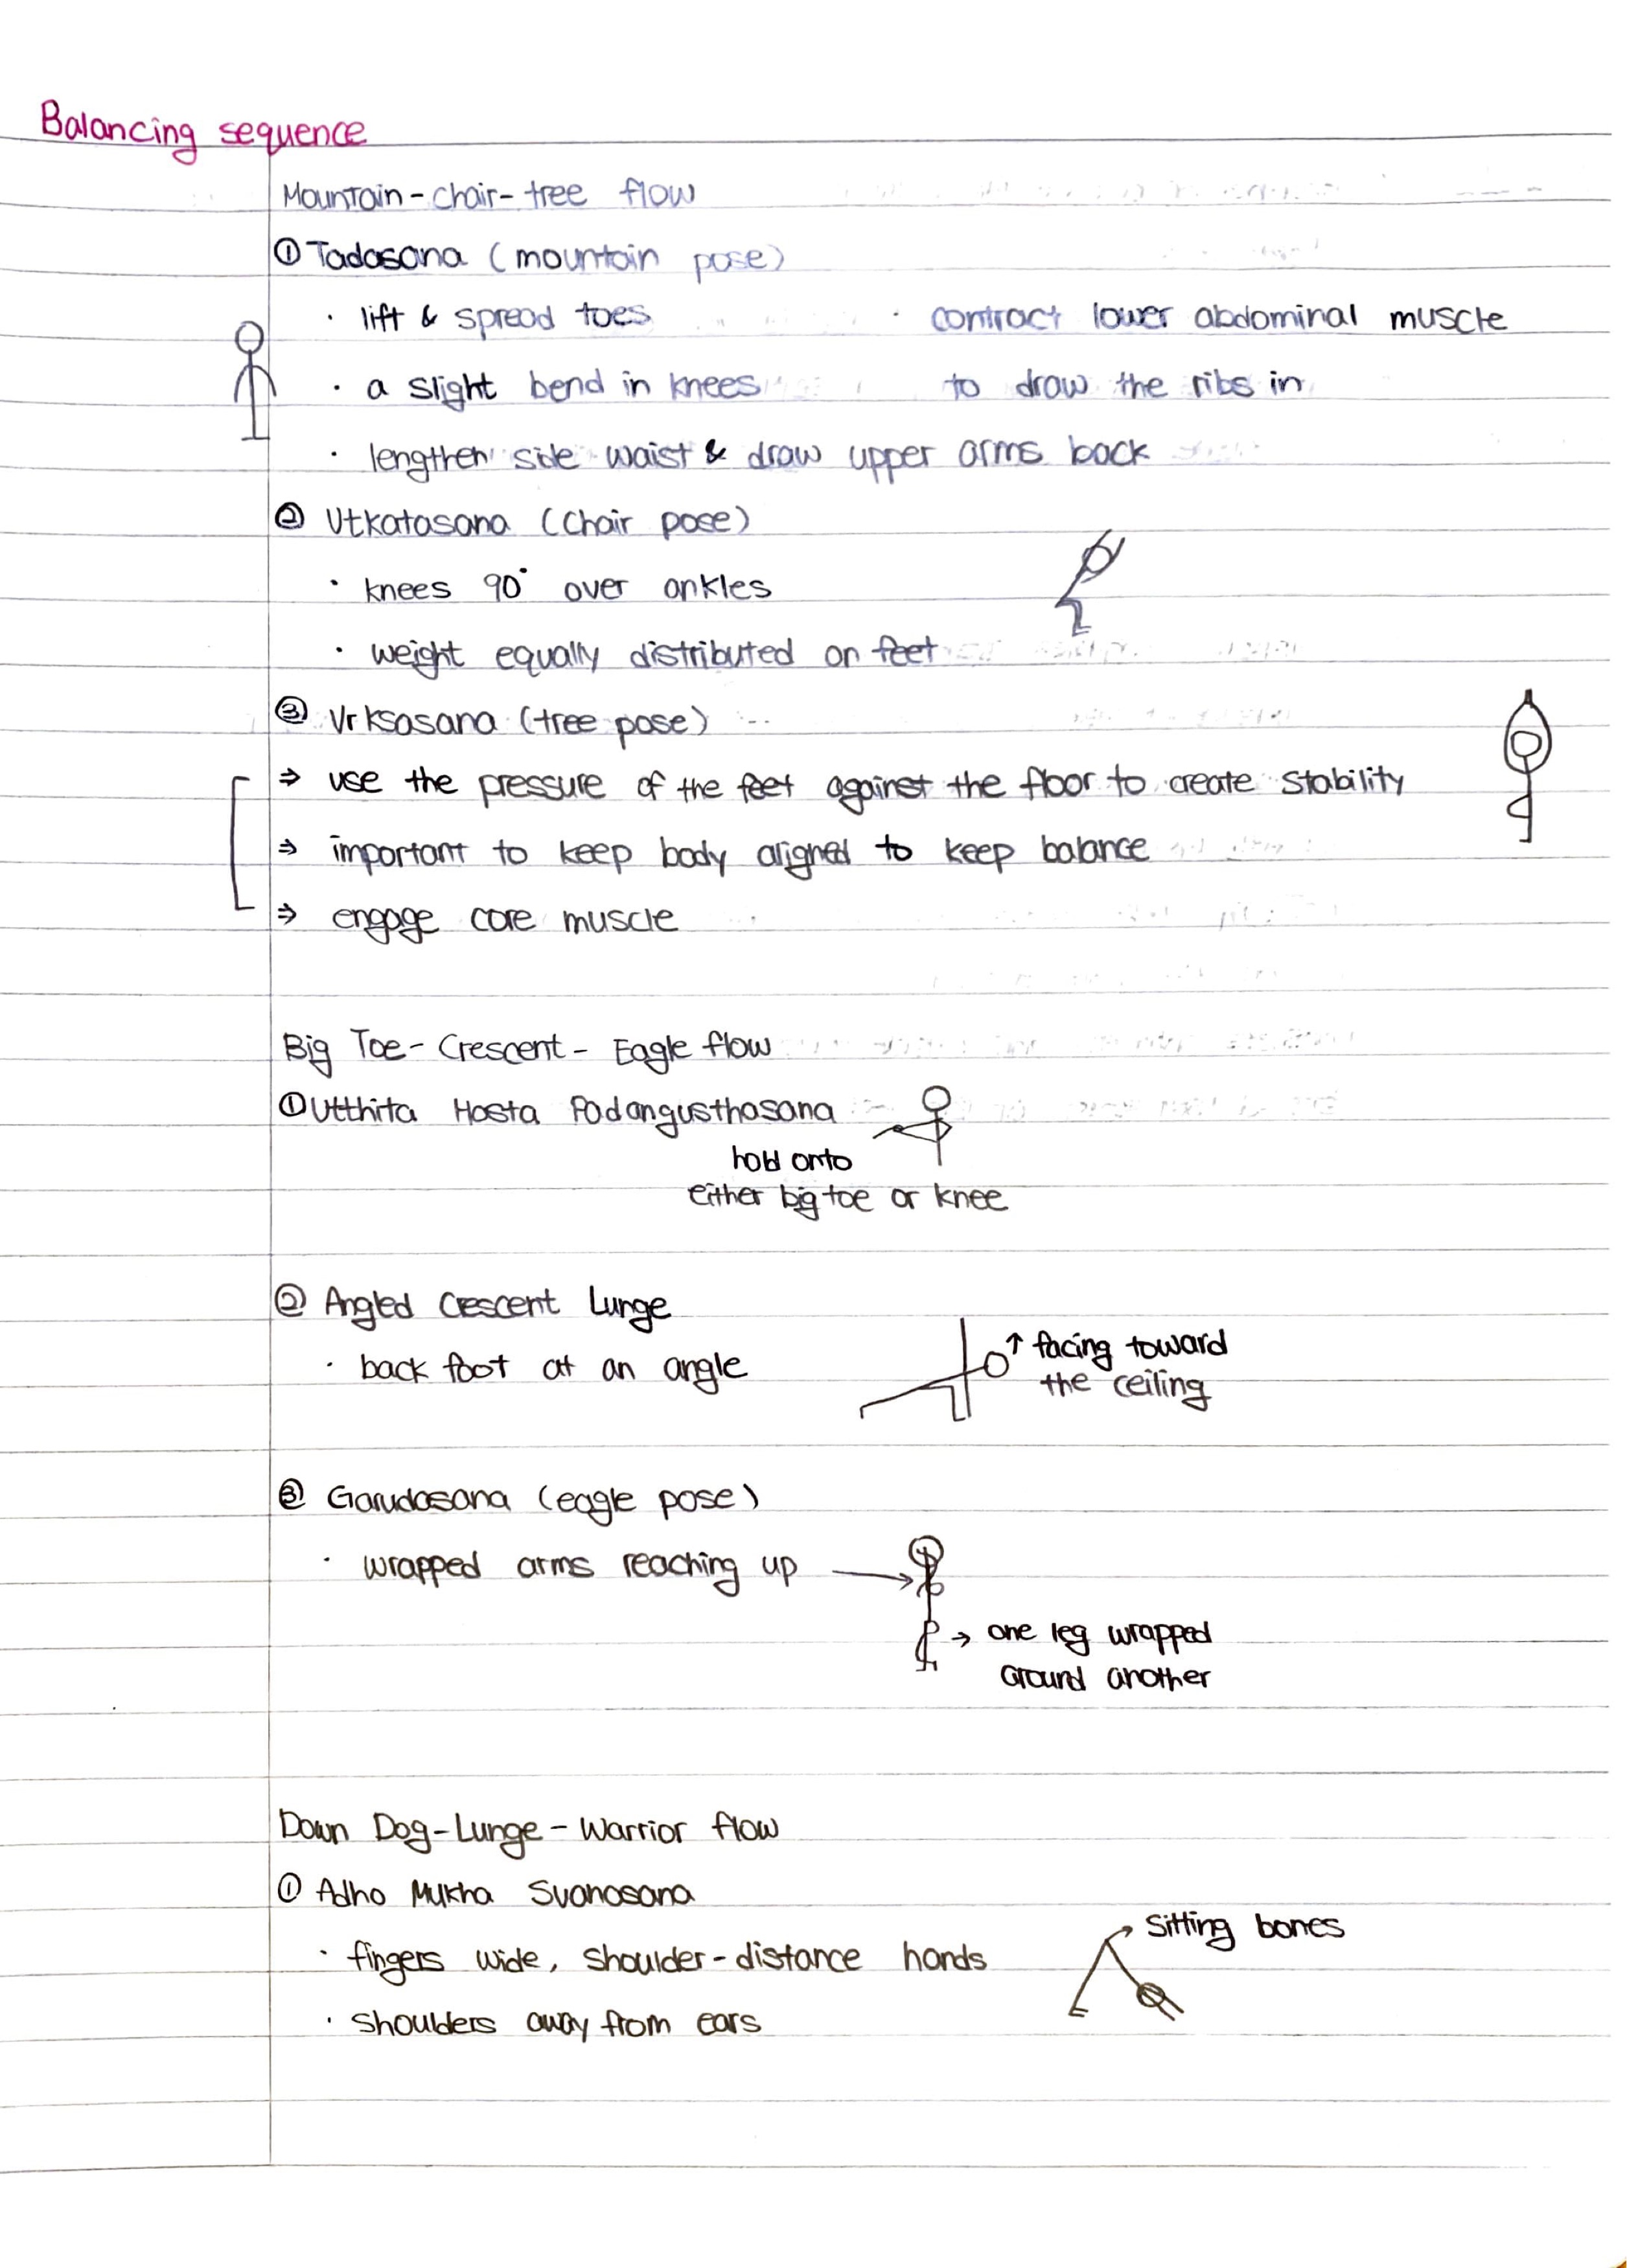 Balancing sequence
Mountain-chair-tree flow
① Tadasana (mountain pose)
· lift & spread toes
· contract lower abdominal muscle
· a slight bend in knees
to draw the ribs in
· lengthen side waist & draw upper arms back
② Utkatasana (Chair pose)
· knees 90° over ankles
· weight equally distributed on feet
③ Vrksasana (tree pose)
⇒ use the pressure of the feet against the floor to create stability
⇒ important to keep body aligned to keep balance
⇒ engage core muscle
Big Toe-Crescent-Eagle flow
① Utthita Hasta Padangusthasana
hold onto
either big toe or knee
② Angled Crescent Lunge
↑ facing toward
· back foot at an angle
the ceiling
③ Garudasana (eagle pose)
· wrapped arms reaching up →
→ one leg wrapped
around another
Down Dog-Lunge-Warrior flow
① Adho Mukha Svanasana
→ Sitting bones
· fingers wide, shoulder-distance hands
· shoulders away from ears